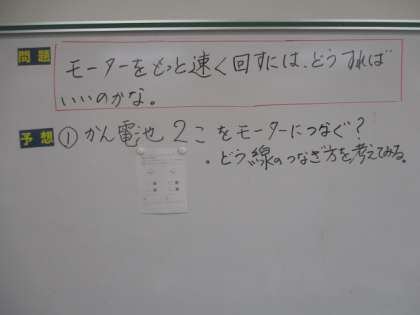 問題
モーターをもっと速く回すには、どうすれば
いいのかな。
予想 ① かん電池 2こをモーターにつなぐ?
・どう線のつなぎ方を考えてみる。